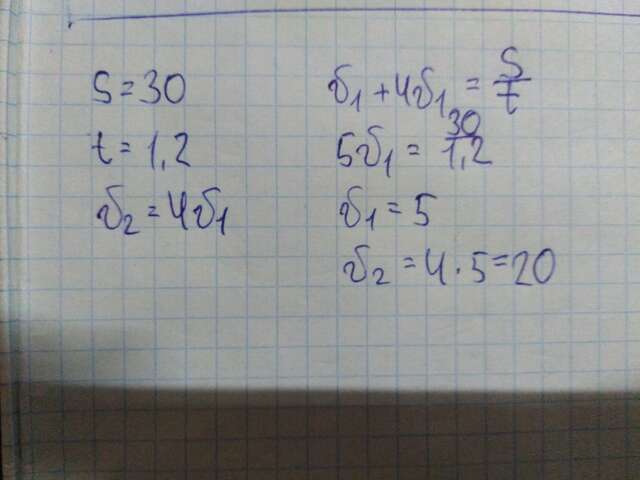 S = 30
t = 1,2
v₂ = 4v₁
v₁ + 4v₁ = S/t
5v₁ = 30/1,2
v₁ = 5
v₂ = 4 · 5 = 20